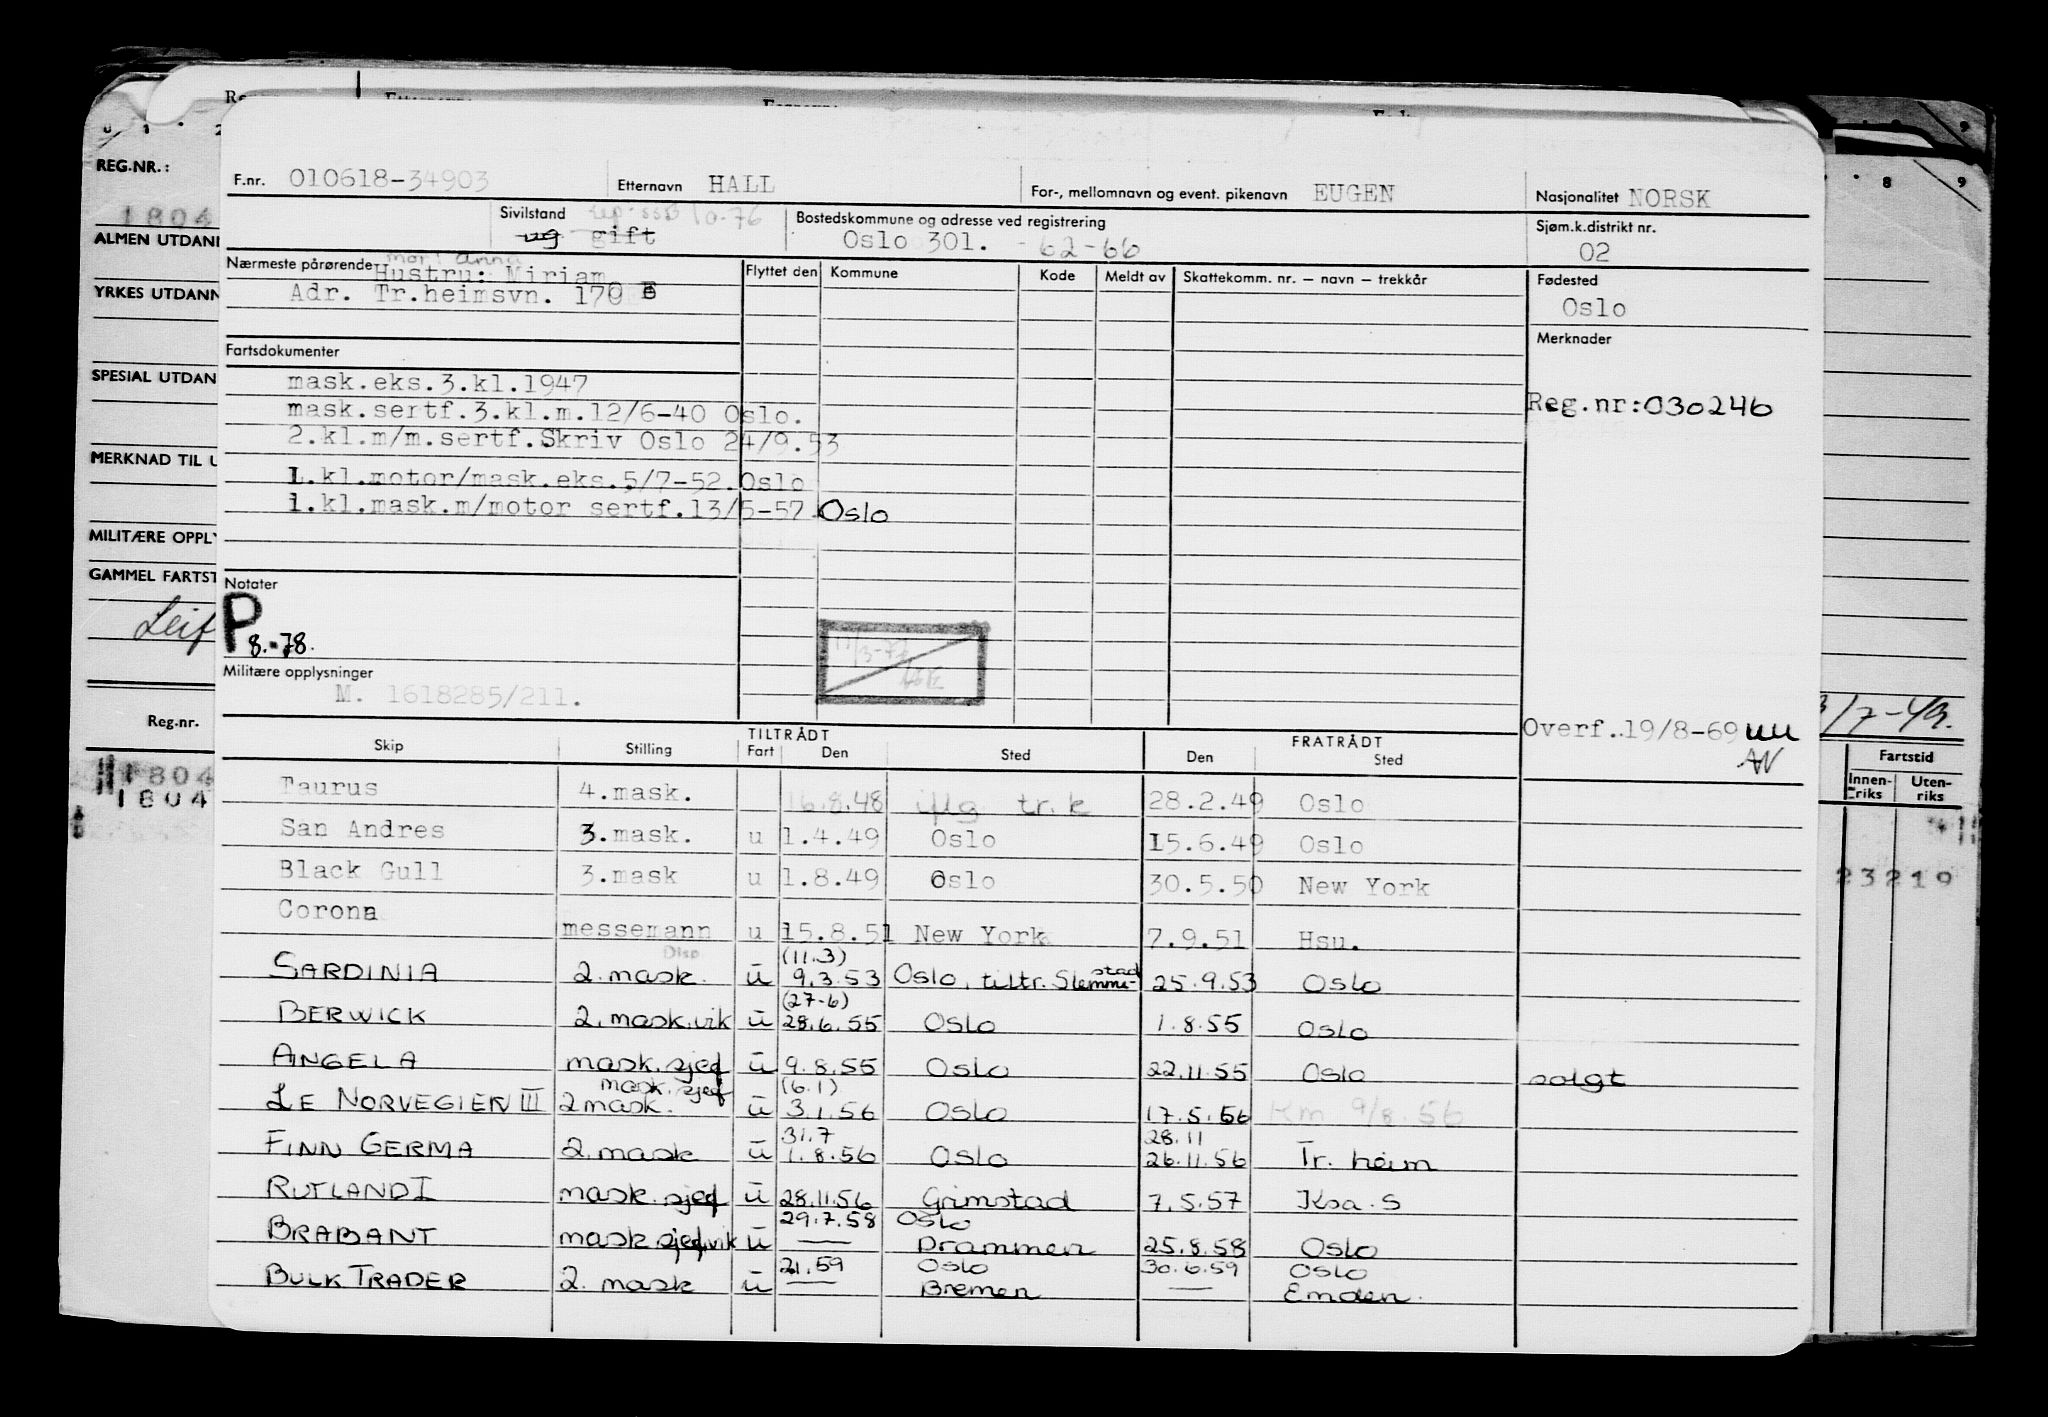 REG.NR.:
1804
ALMEN UTDAN
YRKES UTDANN
SPESIAL UTDAN
MERKNAD TIL U
MILITÆRE OPPLY
GAMMEL FARTST
Leif
Reg.nr.
1804
1804
F.nr. 010618-34903 Etternavn HALL For-, mellomnavn og event. pikenavn EUGEN Nasjonalitet NORSK
Sivilstand sep. SSB 10-76 Bostedskommune og adresse ved registrering Sjøm.k.distrikt nr.
ug gift Oslo 301. -62-66 02
Nærmeste pårørende mor: Anna Flyttet den Kommune Kode Meldt av Skattekomm. nr. – navn – trekkår Fødested
Hustru: Miriam
Adr. Tr.heimsvn. 170 B Oslo
Fartsdokumenter Merknader
mask.eks.3.kl.1947
mask.sertf.3.kl.m.12/6-40 Oslo. Reg.nr:030246
2.kl.m/m.sertf.Skriv Oslo 24/9.53
1.kl.motor/mask.eks.5/7-52.Oslo
1.kl.mask.m/motor sertf.13/5-57 Oslo
Notater
P 8.-78.
Militære opplysninger
M. 1618285/211.
Overf..19/8-69
/7-43.
TILTRÅDT FRATRÅDT
Skip Stilling Fart Den Sted Den Sted
Fartstid
Innenriks Utenriks
Taurus 4.mask. 16.8.48 tr.k 28.2.49 Oslo
San Andres 3.mask. u 1.4.49 Oslo 15.6.49 Oslo
Black Gull 3.mask u 1.8.49 Oslo 30.5.50 New York
23219
Corona messemann u 15.8.51 New York 7.9.51 Hsu.
Disp (11.3)
SARDINIA 2.mask. u 9.3.53 Oslo, tiltr. Slemmestad 25.9.53 Oslo
(27-6)
BERWICK 2.mask.vik u 28.6.55 Oslo 1.8.55 Oslo
ANGELA mask.sjef u 9.8.55 Oslo 22.11.55 Oslo solgt
mask.sjef (6.1)
LE NORVEGIEN III 2mask. u 3.1.56 Oslo 17.5.56 Km 9/8.56
31.7 28.11
FINN GERMA 2.mask u 1.8.56 Oslo 26.11.56 Tr. heim
RUTLAND I mask.sjef u 28.11.56 Grimstad 7.5.57 Ksa.S
29.7.58 Oslo
BRABANT mask.sjef.vik u — Drammen 25.8.58 Oslo
2.1.59 Oslo 30.6.59 Oslo
BULK TRADER 2. mask u — Bremen — Emden.